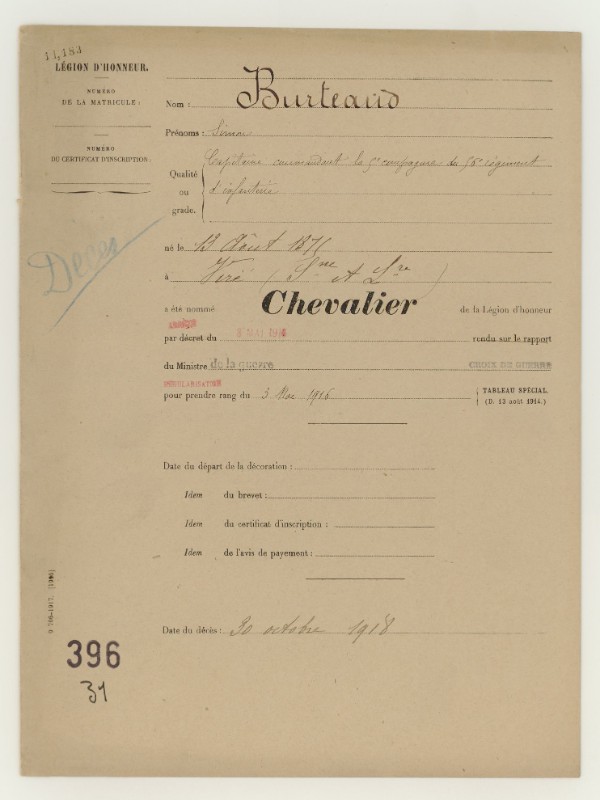 11,183
LÉGION D'HONNEUR.
NUMÉRO
DE LA MATRICULE :
NUMÉRO
DU CERTIFICAT D'INSCRIPTION :
Nom : Burteaud
Prénoms : Simon
Qualité ou grade. Capitaine commandant la 5e compagnie du 56e régiment
d'infanterie
né le 13 Août 1871
à Viré (Sne et Lre)
Décès
a été nommé Chevalier de la Légion d'honneur
par décret du MAI 1916 rendu sur le rapport
du Ministre de la guerre CROIX DE GUERRE
RÉGULARISATION
pour prendre rang du 3 Mai 1916
TABLEAU SPÉCIAL.
(D. 13 août 1914.)
Date du départ de la décoration :
Idem du brevet :
Idem du certificat d'inscription :
Idem de l'avis de payement :
Date du décès : 30 octobre 1918
396
31